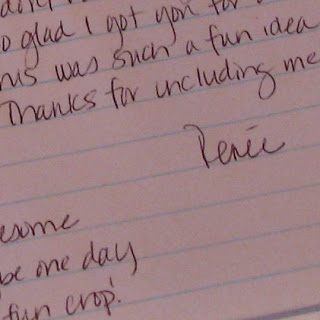 glad I got you for
was such a fun idea
Thanks for including me
Renée
one day
fun crop!